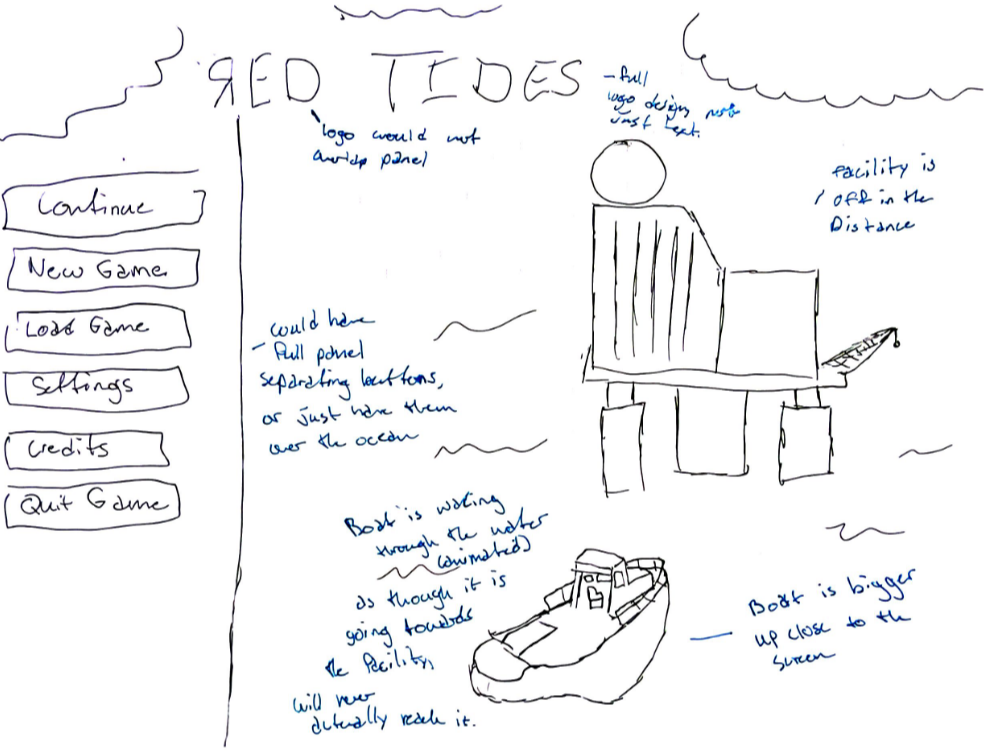 RED TIDES
- full
logo design, not
Just text.
logo would not
overlap panel
Continue
New Game
Load Game
Settings
Credits
Quit Game
facility is
off in the
Distance
- could have
full panel
separating buttons,
or just have them
over the ocean
Boat is
through the water
(animated)
as though it is
going towards
the facility,
will never
actually reach it.
Boat is bigger
up close to the
screen